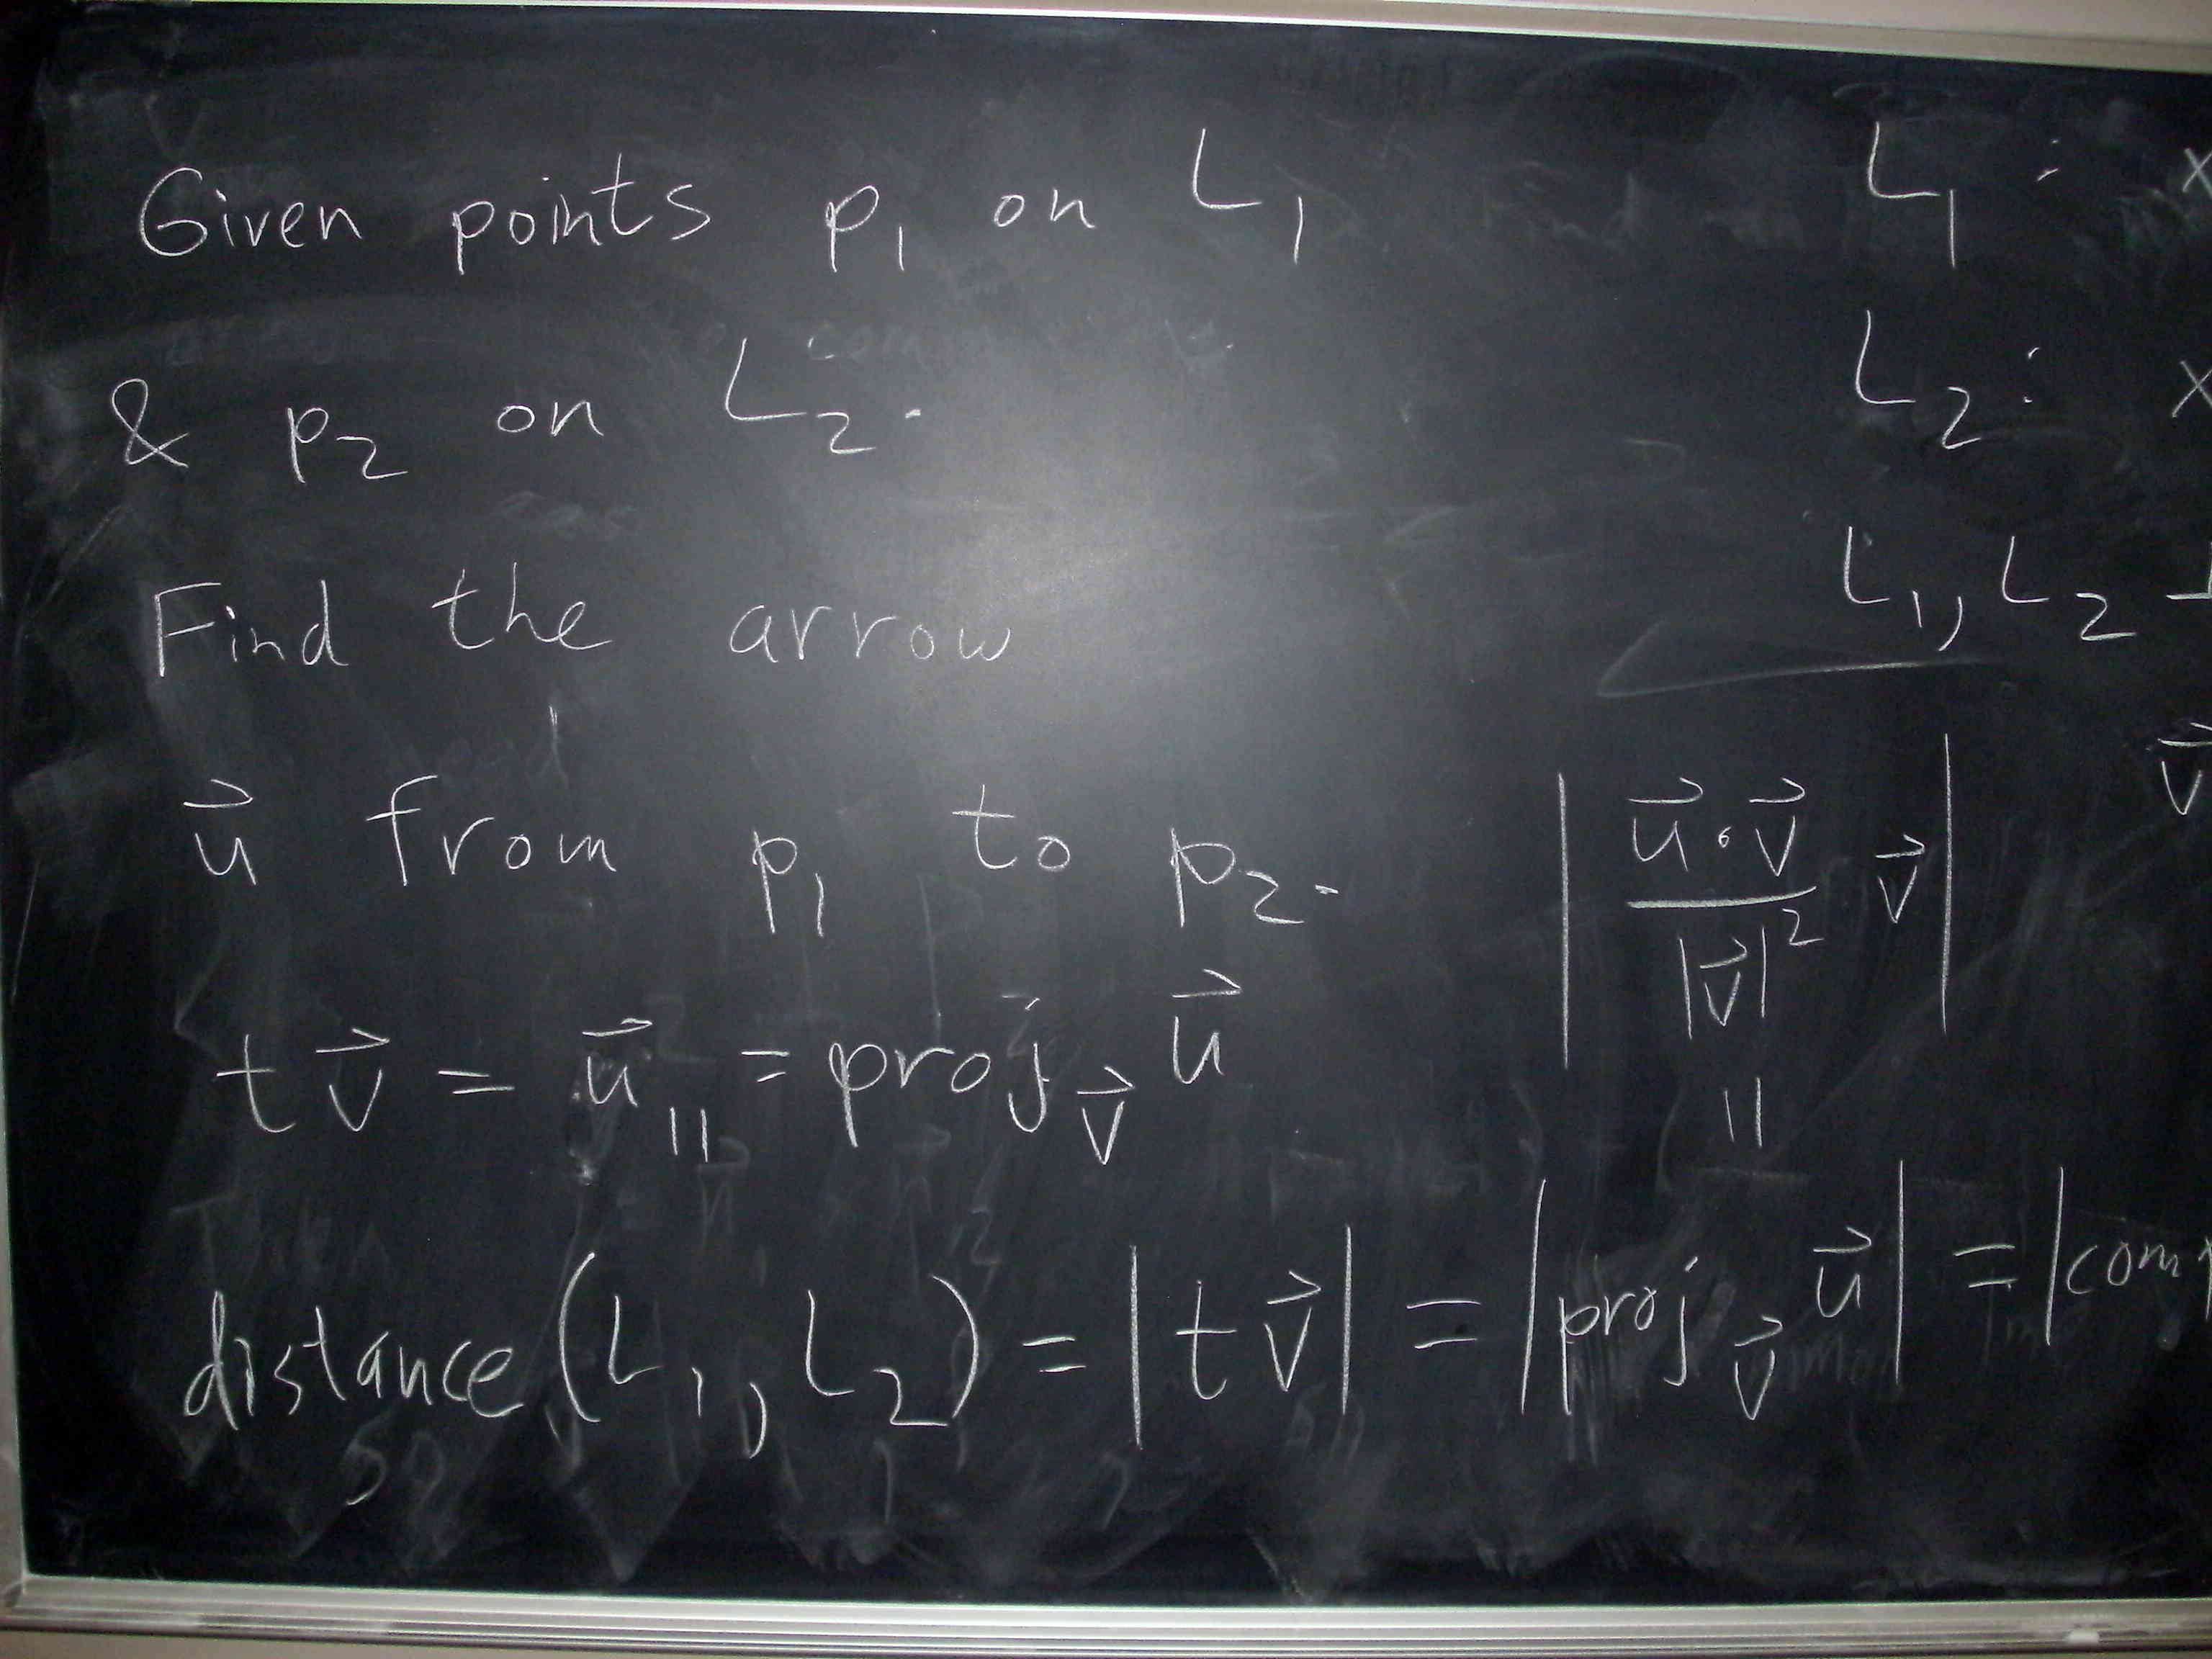 Given points p₁ on L₁
& p₂ on L₂.
Find the arrow
u⃗ from p₁ to p₂.
t v⃗ = u⃗_∥ = proj_v⃗ u⃗
distance(L₁, L₂) = |t v⃗| = |proj_v⃗ u⃗| = |com
L₁ : x
L₂ : x
L₁, L₂ ⊥
v⃗
| (u⃗ · v⃗)/|v⃗|² v⃗ |
||